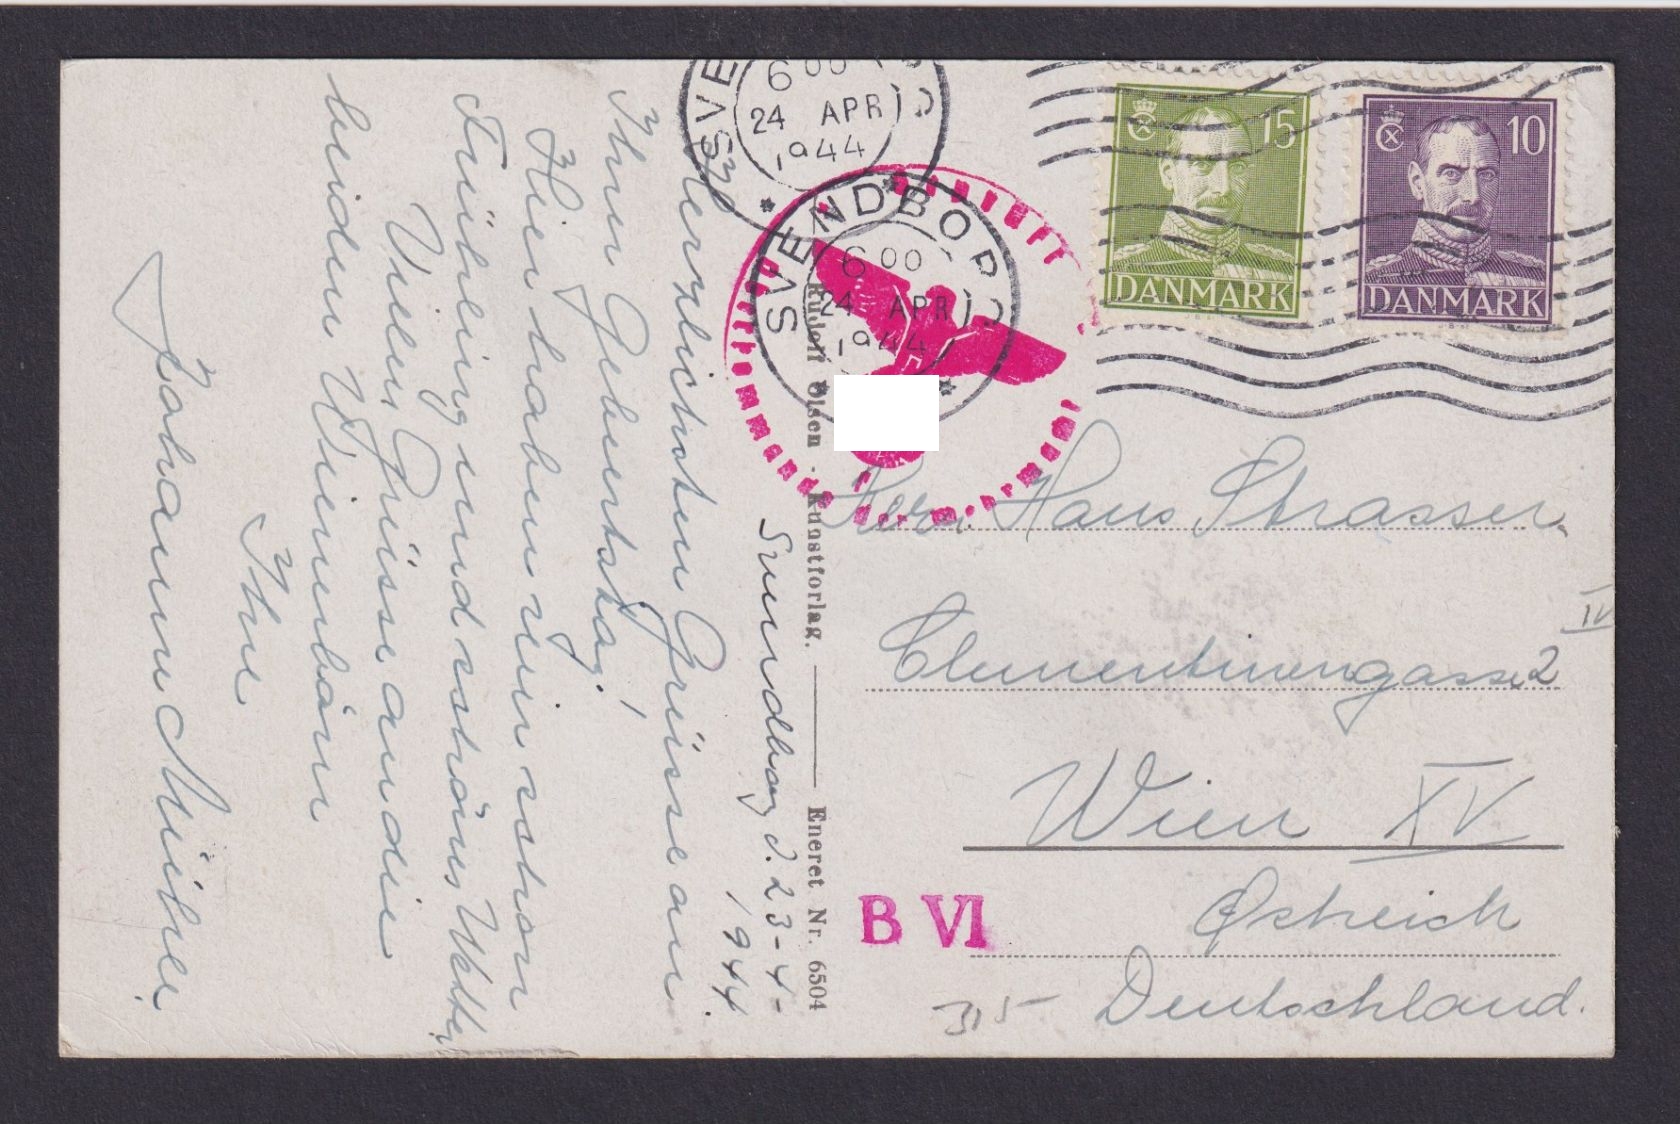 Svendborg d. 23-4-
1944.
Herzlichsten Grüsse an
Ihren Geburtstag!
Hier haben wir schon
Frühling und schönes Wetter,
Vielen Grüsse an die
beiden
Ihre
Johanne
Rudolf Olsen · Kunstforlag.
Eneret Nr. 6504
SVE
6 00
24 APR
1944
SVENDBORG
6 00
24 APR
1944
15
DANMARK
10
DANMARK
Herrn Hans Strasser
IV
Clementinengasse 2
Wien XV
Østreich
Deutschland.
B VI